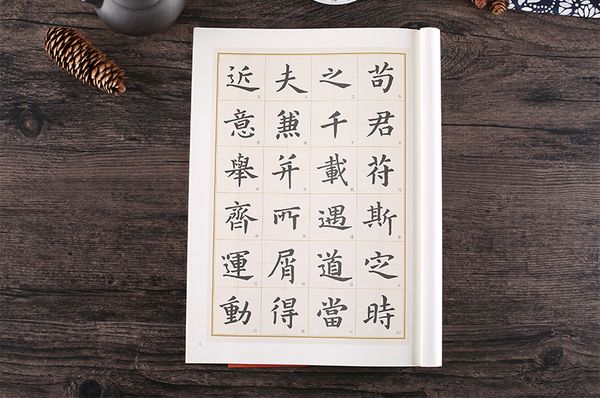 苟君苻斯㝎時
之千載遇道當
夫兼并所屑得
近意舉齊運動